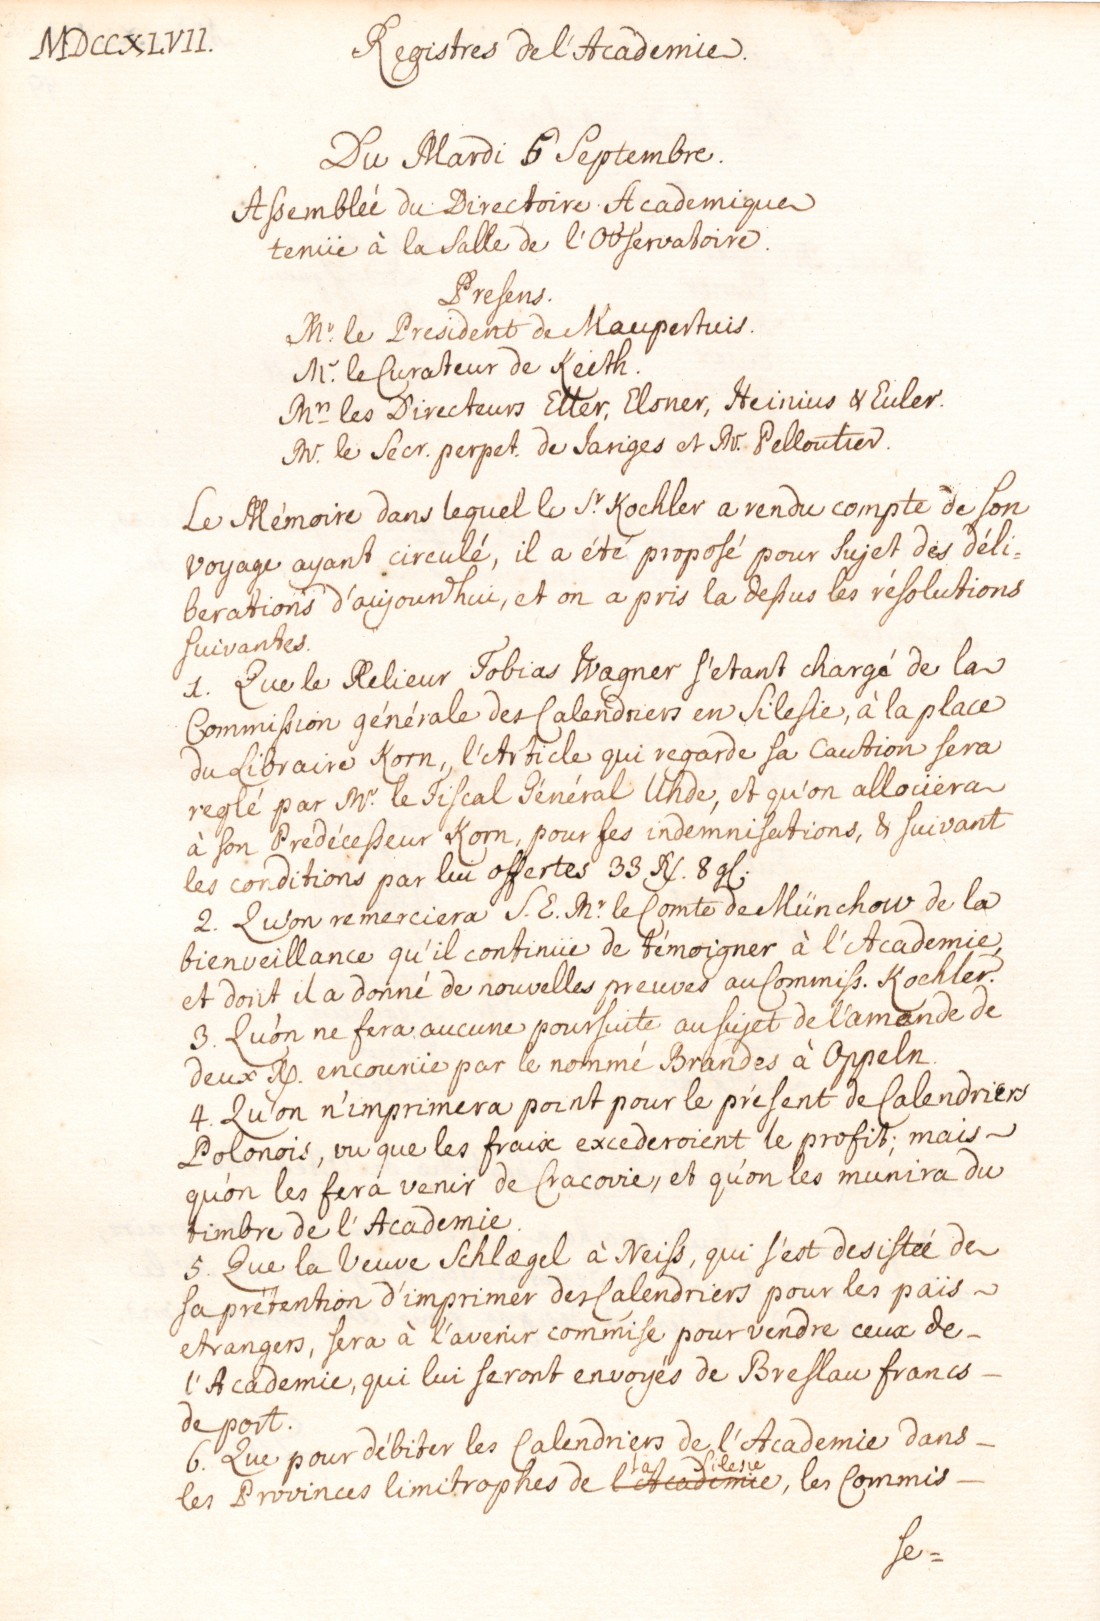 MDCCXLVII.
Registres de l'Academie.
Du Mardi 5 Septembre.
Assembleé du Directoire Academique
tenuë à la Salle de l'Observatoire.
Presens.
Mr. le President de Maupertuis.
Mr. le Curateur de Keith.
Mrs les Directeurs Eller, Elsner, Heinius & Euler.
Mr. le Secr. perpet. de Jariges et Mr. Pelloutier.
Le Mémoire dans lequel le Sr. Kochler a rendu compte de son
voyage ayant circulé, il a été proposé pour sujet des déli=
berations d'aujourdhui, et on a pris la dessus les résolutions
suivantes.
1. Que le Relieur Tobias Wagner s'etant chargé de la
Commission générale des Calendriers en Silesie, à la place
du Libraire Korn, l'Article qui regarde sa Caution sera
reglé par Mr. le Fiscal Général Uhde, et qu'on alloüera
à son Predécesseur Korn, pour ses indemnisations, & suivant
les conditions par lui offertes 33 R. 8 gl.
2. Qu'on remerciera S. E. Mr. le Comte de Münchow de la
bienveillance qu'il continüe de témoigner à l'Academie,
et dont il a donné de nouvelles preuves au Commiss. Kochler.
3. Qu'on ne fera aucune poursuite au sujet de l'amende de
deux R. encouruë par le nommé Brandes à Oppeln.
4. Qu'on n'imprimera point pour le présent de Calendriers
Polonois, vu que les fraix excederoient le profit; mais
qu'on les fera venir de Cracovie, et qu'on les munira du
timbre de l'Academie.
5. Que la Veuve Schlægel à Neiss, qui s'est desisteé de
sa prétention d'imprimer des Calendriers pour les païs
etrangers, sera à l'avenir commise pour vendre ceux de
l'Academie, qui lui seront envoyés de Breslau francs
de port.
6. Que pour débiter les Calendriers de l'Academie dans
les Provinces limitrophes de l'Academie la Silesie, les Commis
se=